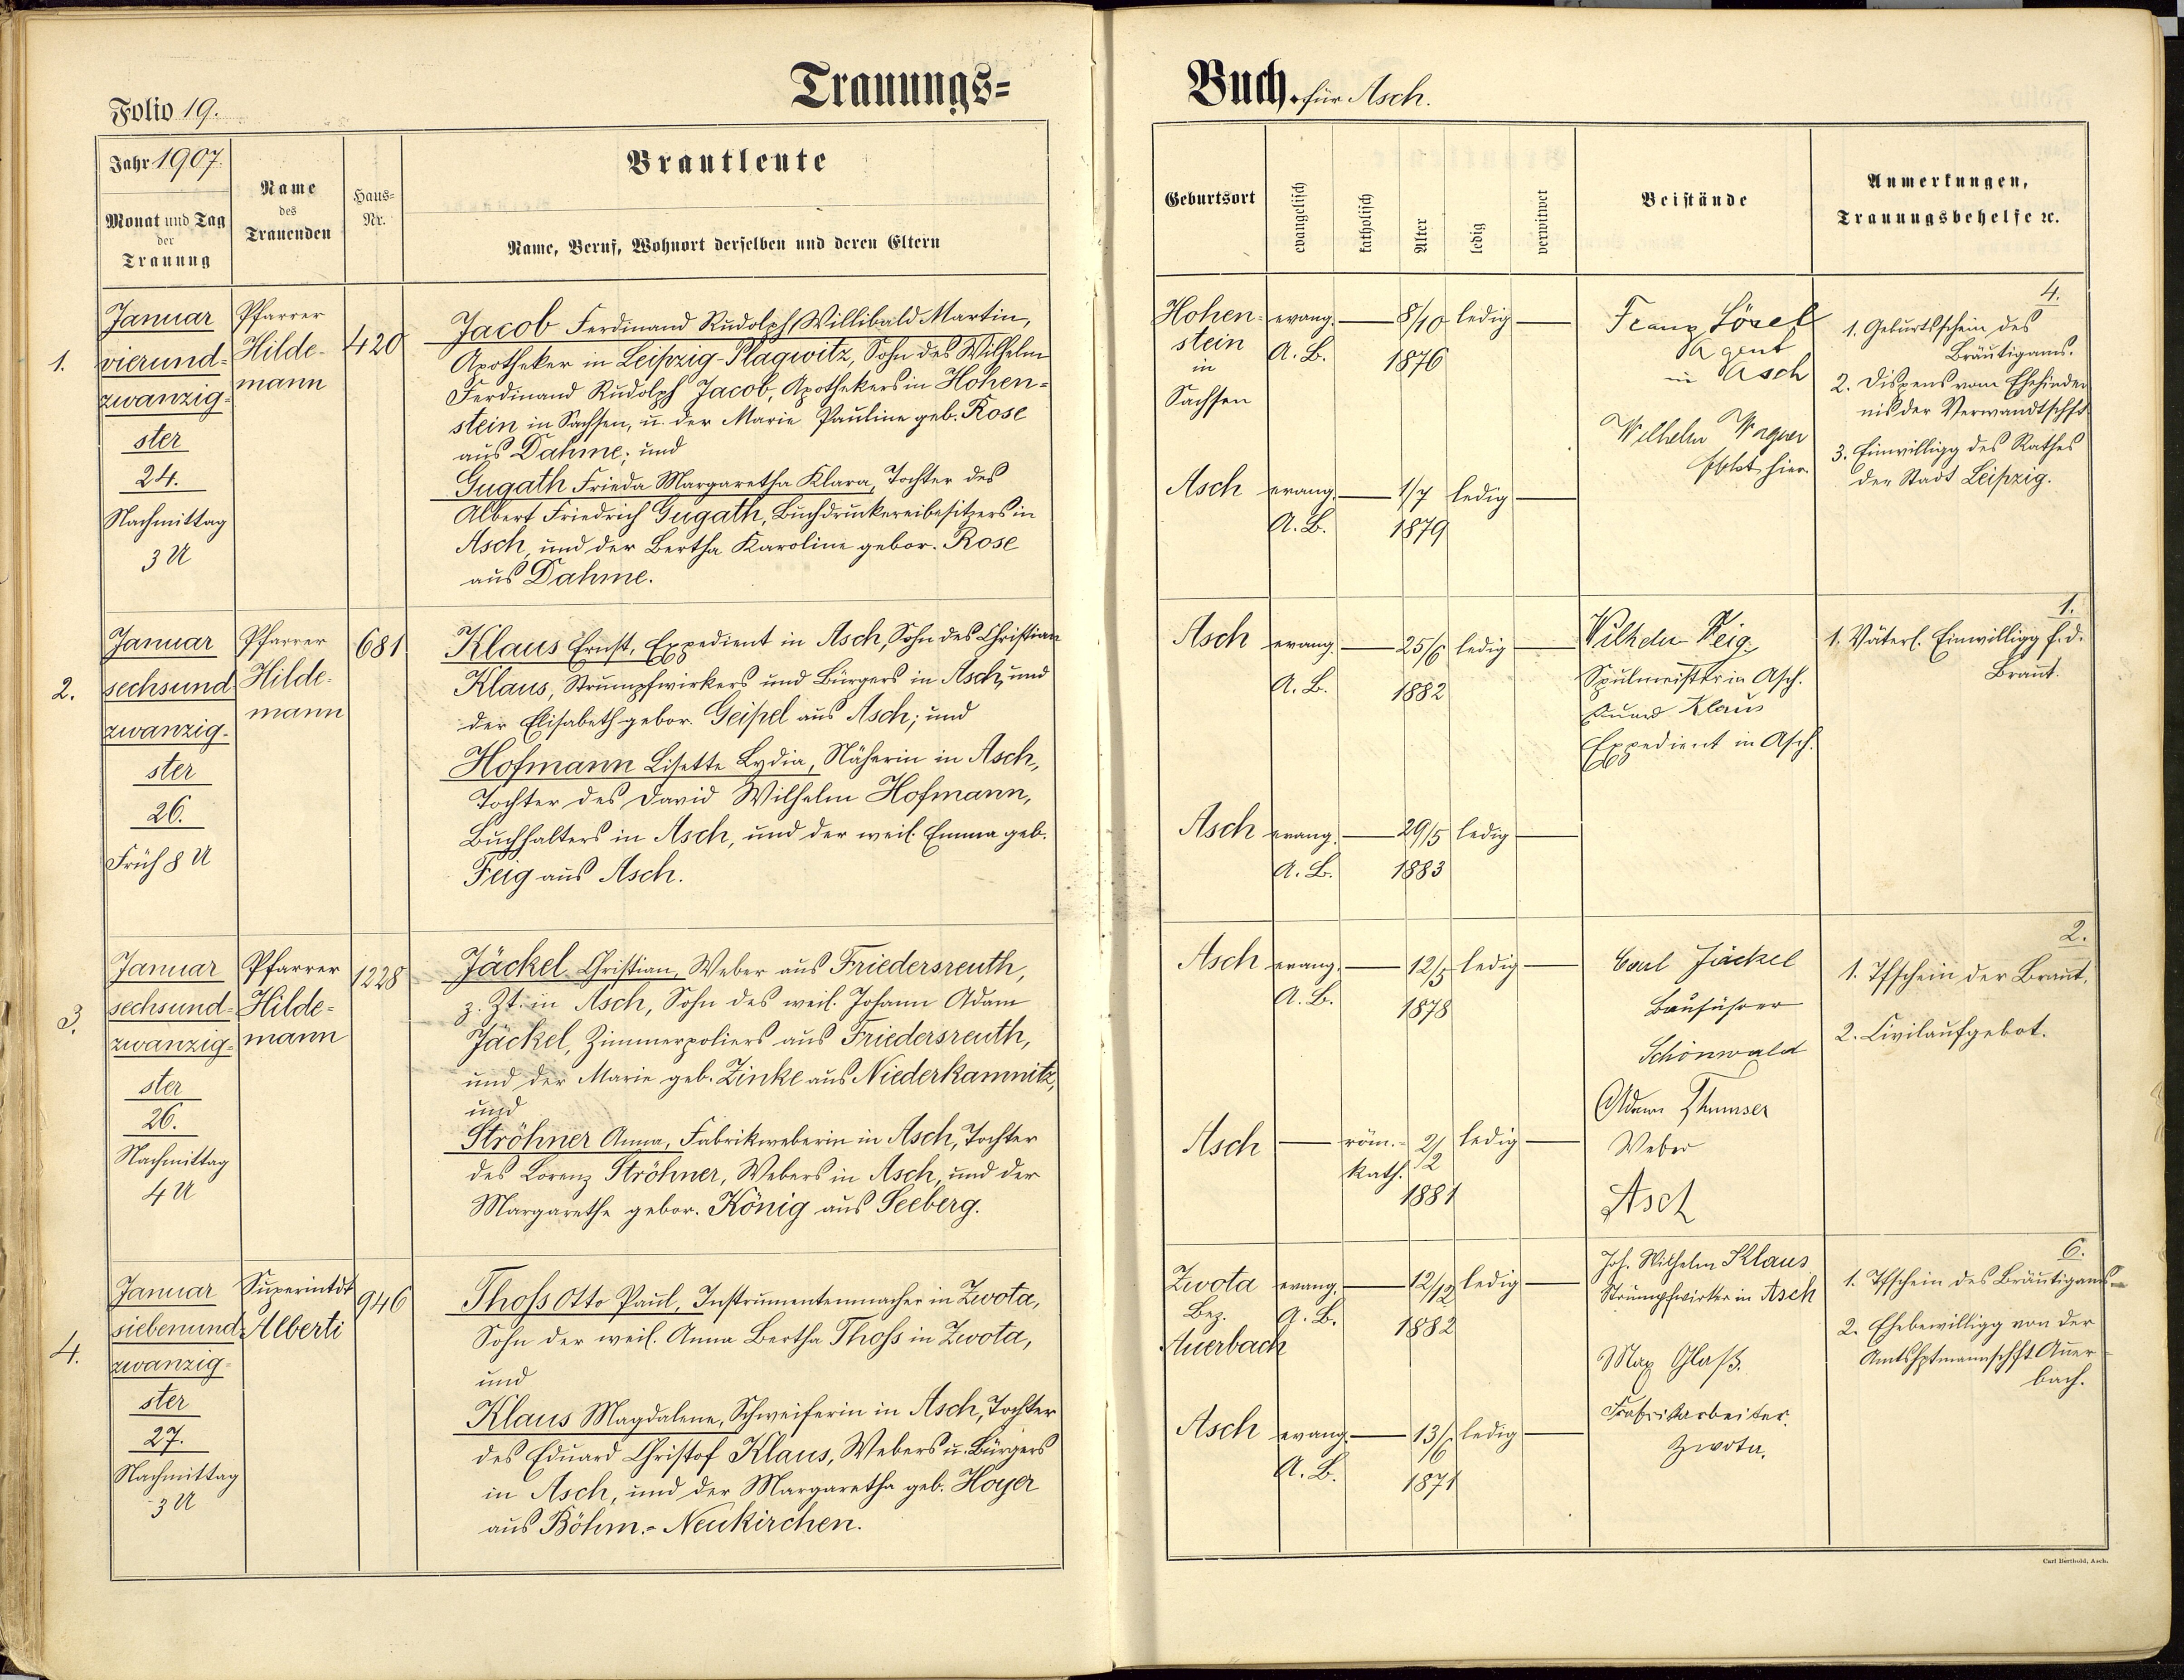 Trauungs-
Buch. für Asch.
Folio 19.
Jahr 1907.
Monat und Tag
der
Trauung
Name
des
Trauenden
Haus-
Nr.
Brautleute
Name, Beruf, Wohnort derselben und deren Eltern
Geburtsort
evangelisch
katholisch
Alter
ledig
verwitwet
Beistände
Anmerkungen,
Trauungsbehelfe ꝛc.
1.
Januar
vierund-
zwanzig-
ster
24.
Nachmittag
3 U
Pfarrer
Hilde-
mann
420
Jacob Ferdinand Rudolph Willibald Martin,
Apotheker in Leipzig-Plagwitz, Sohn des Wilhelm
Ferdinand Rudolph Jacob, Apothekers in Hohen-
stein in Sachsen, u. der Marie Pauline geb. Rose
aus Dahme; und
Gugath Frieda Margaretha Klara, Tochter des
Albert Friedrich Gugath, Buchdruckereibesitzers in
Asch, und der Bertha Karoline gebor. Rose
aus Dahme.
Hohen-
stein
in
Sachsen
evang.
A. B.
8/10
1876
ledig
Asch
evang.
A. B.
1/7
1879
ledig
Franz Lösel
Agent
in Asch
Wilhelm Wagner
hier.
4.
1. Geburtsschein des
Bräutigams.
2. Dispens vom Ehehinder
nis der Verwandtschft
3. Einwilligg des Rathes
der Stadt Leipzig.
2.
Januar
sechsund
zwanzig-
ster
26.
Früh 8 U
Pfarrer
Hilde-
mann
681
Klaus Ernst, Expedient in Asch, Sohn des Christian
Klaus, Strumpfwirkers und Bürgers in Asch, und
der Elisabeth gebor. Geipel aus Asch; und
Hofmann Lisette Lydia, Näherin in Asch,
Tochter des David Wilhelm Hofmann,
Buchhalters in Asch, und der weil. Emma geb.
Feig aus Asch.
Asch
evang.
A. B.
25/6
1882
ledig
Asch
evang.
A. B.
29/5
1883
ledig
Wilhelm Feig,
Spulmeister in Asch.
Eduard Klaus
Expedient in Asch.
1.
1. Väterl. Einwilligg f. d.
Braut.
3.
Januar
sechsund-
zwanzig-
ster
26.
Nachmittag
4 U
Pfarrer
Hilde-
mann
1228
Jäckel Christian, Weber aus Friedersreuth,
z. Zt. in Asch, Sohn des weil. Johann Adam
Jäckel, Zimmerpoliers aus Friedersreuth,
und der Marie geb. Zinke aus Niederkamnitz,
und
Ströhner Anna, Fabrikweberin in Asch, Tochter
des Lorenz Ströhner, Webers in Asch, und der
Margarethe gebor. König aus Seeberg.
Asch
evang.
A. B.
12/5
1878
ledig
Asch
röm.-
kath.
2/2
1881
ledig
Carl Jäckel
Bauführer
Schönwald
Adam Thumser
Weber
Asch
2.
1. Tfschein der Braut.
2. Civilaufgebot.
4.
Januar
siebenund-
zwanzig-
ster
27.
Nachmittag
3 U
Superintdt
Alberti
946
Thoß Otto Paul, Instrumentenmacher in Zwota,
Sohn der weil. Anna Bertha Thoß in Zwota,
und
Klaus Magdalene, Schweiferin in Asch, Tochter
des Eduard Christof Klaus, Webers u. Bürgers
in Asch, und der Margaretha geb. Hoyer
aus Böhm.-Neukirchen.
Zwota
Bez.
Auerbach
evang.
A. B.
12/12
1882
ledig
Asch
evang.
A. B.
13/6
1871
ledig
Joh. Wilhelm Klaus
Strumpfwirker in Asch
Max Glaß.
Fabrikarbeiter.
Zwota.
6.
1. Tfschein des Bräutigams
2. Ehebewilligg von der
Amtshptmannschft Auer-
bach.
Carl Berthold, Asch.